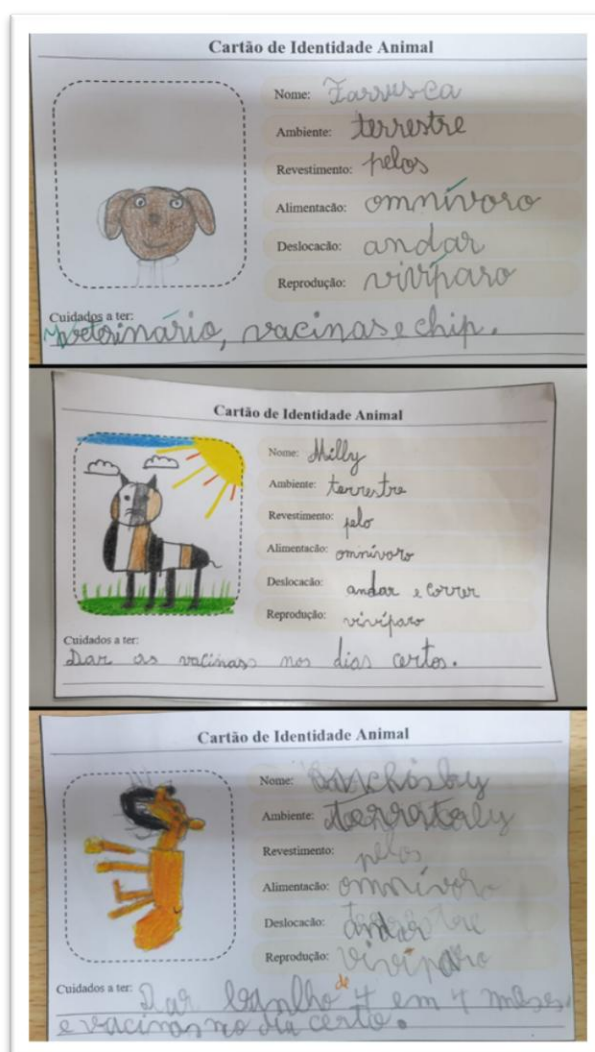 Cartão de Identidade Animal
Nome: Farrusca
Ambiente: terrestre
Revestimento: pelos
Alimentacão: omnívoro
Deslocacão: andar
Reprodução: vivíparo
Cuidados a ter:
veterinário, vacinas e chip.
Cartão de Identidade Animal
Nome: Milly
Ambiente: terrestre
Revestimento: pelo
Alimentacão: omnívoro
Deslocacão: andar e correr
Reprodução: vivíparo
Cuidados a ter:
Dar as vacinas nos dias certos.
Cartão de Identidade Animal
Nome:
Ambiente:
Revestimento: pelos
Alimentacão: omnívoro
Deslocacão: andar
Reprodução: vivíparo
Cuidados a ter: Dar banho de 4 em 4 meses
e vacinas no dia certo.